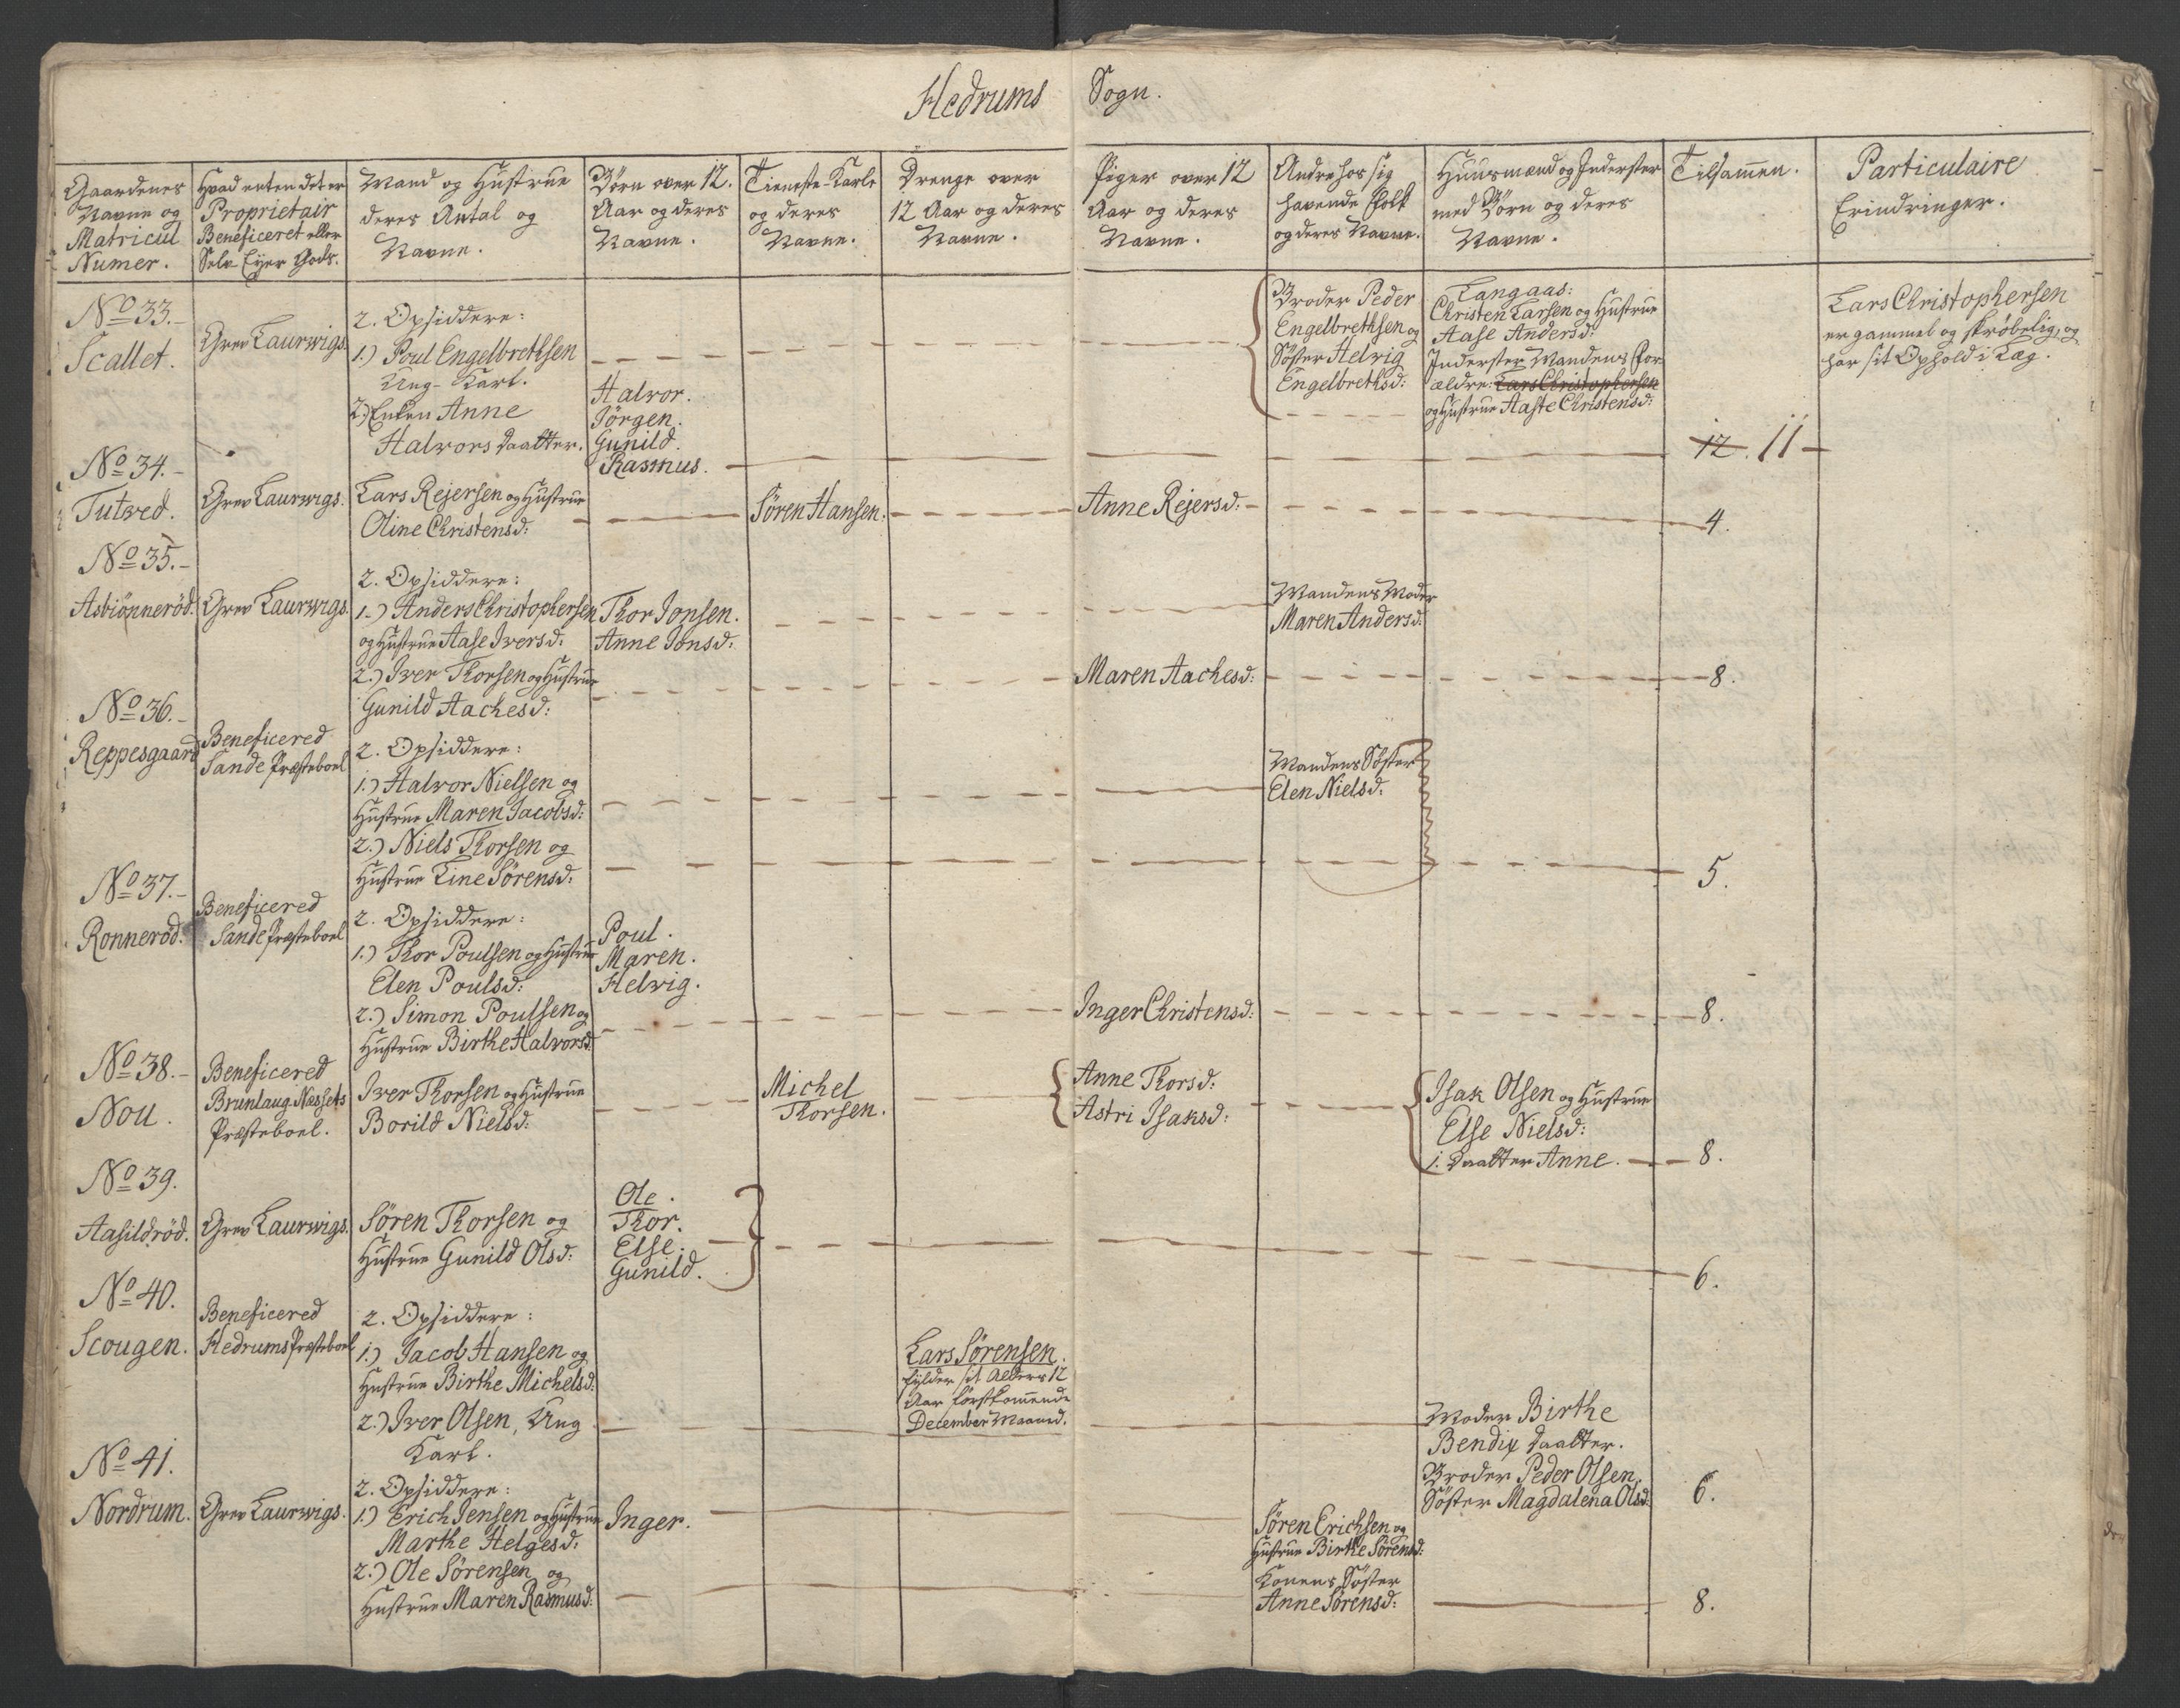 Hedrums Sogn.
Gaardenes Navne og Matricul Numer.
Hvad enten det er Proprietair Beneficeret eller Selv Eyer Gods.
Mand og Hustrue deres Antal og Navne.
Börn over 12. Aar og deres Navne.
Tieneste Karle og deres Navne.
Drenge over 12 Aar og deres Navne.
Piger over 12 Aar og deres Navne.
Andre hos sig havende Folk og deres Navne.
Huusmænd og Inderster med Börn og deres Navne.
Tilsammen.
Particulaire Erindringer.
No 33.-
Scallet.
Grev Laurwigs.
2. Opsiddere:
1.) Poul Engelbrethsen
Ung-Karl.
2.) Enken Anne
Halvors Daatter.
Halvor.
Jörgen.
Gunild.
Rasmus.
Broder Peder
Engelbrethsen og
Söster Helvig
Engelbrethsd:
Langaas:
Christen Larsen og Hustrue
Aase Andersd:
Inderster Mandens For
ældre: Lars Christophersen
og Hustrue Aaste Christensd:
12. 11
Lars Christophersen
er gammel og skröbelig, og
har sit Ophold i Læg.
No 34.-
Tutved.
Grev Laurwigs.
Lars Rejersen og Hustrue
Oline Christensd:
Sören Hansen.
Anne Rejersd:
4.
No 35.-
Asbiönneröd.
Grev Laurwigs.
2. Opsiddere:
1.) Anders Christophersen
og Hustrue Aase Iversd:
2.) Iver Thorsen og Hustrue
Gunild Aachesd:
Thor Jonsen.
Anne Jonsd:
Maren Aachesd:
Mandens Moder
Maren Andersd:
8.
No 36.-
Reppesgaard
Beneficered
Sande Præsteboel
2. Opsiddere:
1.) Halvor Nielsen og
Hustrue Maren Jacobsd:
2.) Niels Thorsen og
Hustrue Line Sörensd:
Mandens Söster
Elen Nielsd:
5.
No 37.-
Ronneröd.
Beneficered
Sande Præsteboel
2. Opsiddere:
1.) Thor Poulsen og Hustrue
Elen Poulsd:
2.) Simon Poulsen og
Hustrue Birthe Halvorsd:
Poul.
Maren.
Helwig.
Inger Christensd:
8.
No 38.-
Nou.
Beneficered
Brunlaug-Næssets
Præsteboel.
Iver Thorsen og Hustrue
Borild Nielsd:
Michel
Thorsen.
Anne Thorsd:
Astri Isaksd:
Isak Olsen og Hustrue
Else Nielsd:
1. Daatter Anne.
8.
No 39.
Aasildröd.
Grev Laurwigs.
Sören Thorsen og
Hustrue Gunild Olsd:
Ole.
Thor.
Else.
Gunild.
6.
No 40.
Scougen.
Beneficered
Hedrums Præsteboel
2. Opsiddere:
1.) Jacob Hansen og
Hustrue Birthe Michelsd:
2.) Iver Olsen, Ung
Karl.
Lars Sörensen.
fylder sit Alders 12
Aar förstkommende
December Maaned.
Moder Birthe
Bendix Daatter.
Broder Peder Olsen.
Söster Magdalena Olsd:
6.
No 41.
Nordrum.
Grev Laurwigs.
2. Opsiddere:
1.) Erich Jensen og Hustrue
Marthe Helgesd:
2.) Ole Sörensen og
Hustrue Maren Rasmusd:
Inger.
Sören Erichsen og
Hustrue Birthe Sörensd:
Konens Söster
Anne Sörensd:
8.